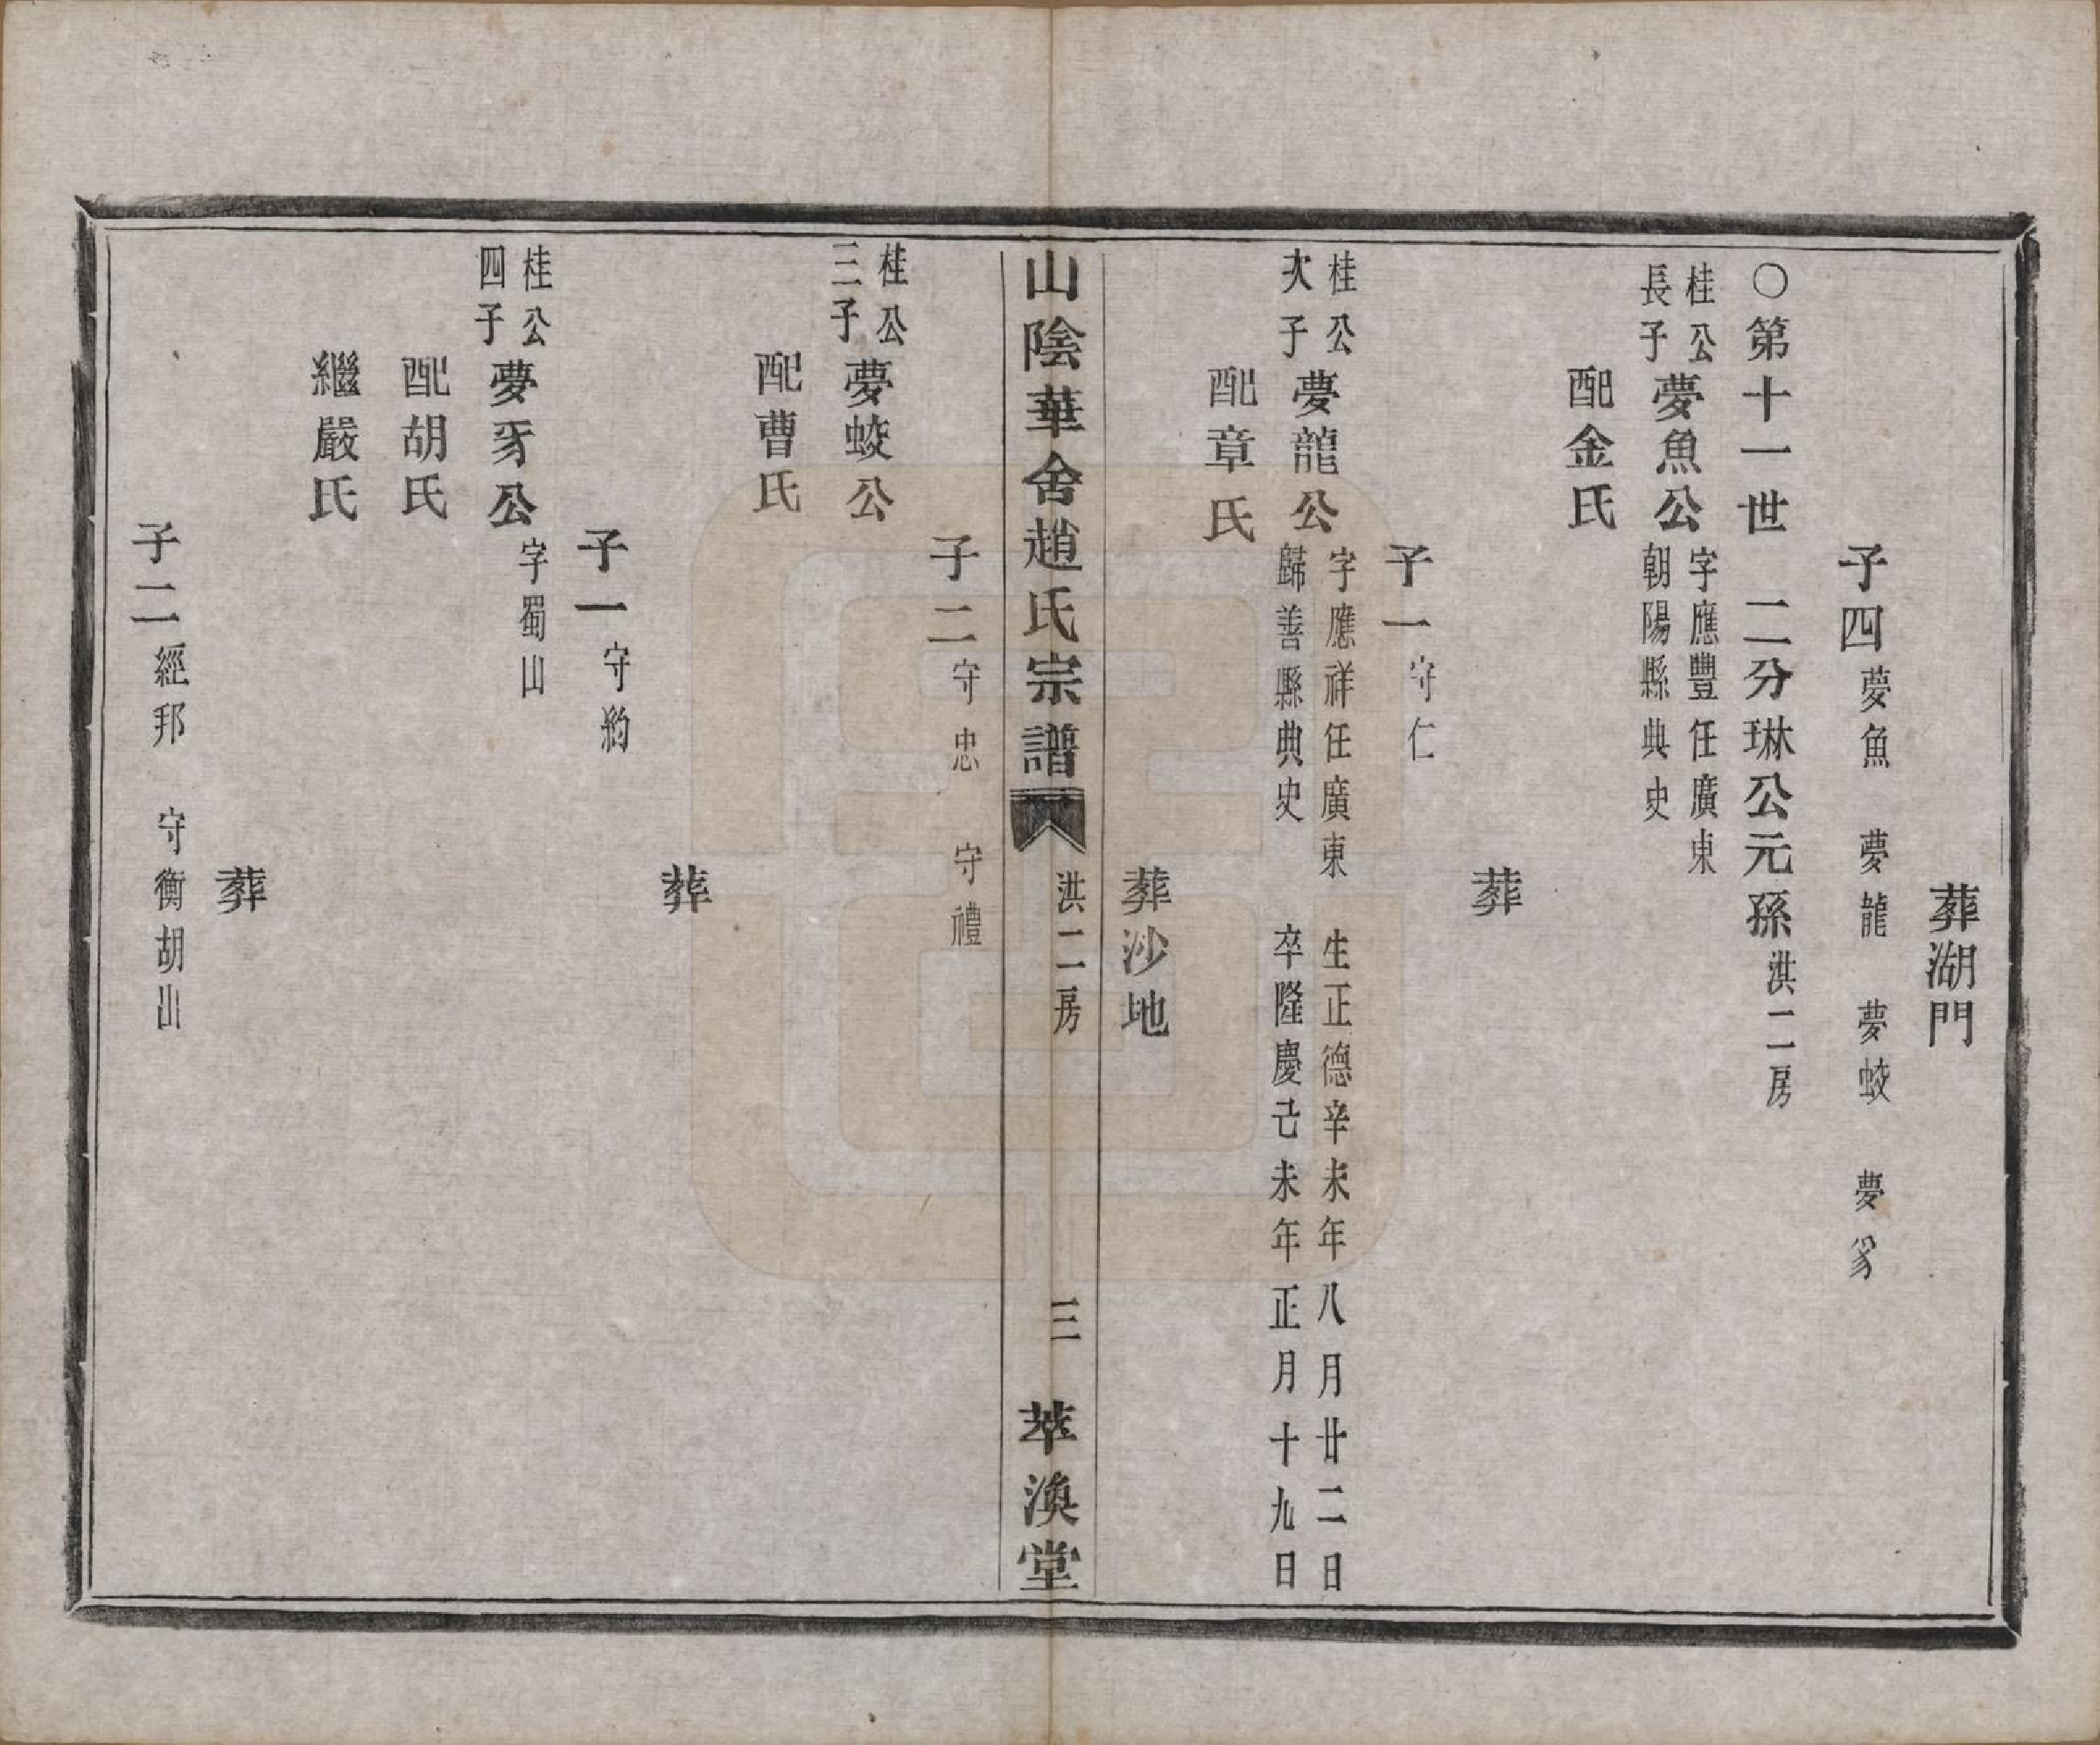 葬湖門
子四夢魚　夢龍　夢蛟　夢豸
〇第十一世　二分琳公元孫洪二房
桂公長子夢魚公字應豐任廣東朝陽縣典史
配金氏
葬
子一守仁
桂公次子夢龍公字應祥任廣東歸善縣典史　生正德辛未年八月廿二日卒隆慶己未年正月十九日
配章氏
葬沙地
山陰華舍趙氏宗譜　洪二房　三　萃渙堂
子二守忠　守禮
桂公三子夢蛟公
配曹氏
葬
子一守約
桂公四子夢豸公字蜀山
配胡氏
繼嚴氏
葬
子二經邦　守衡胡出